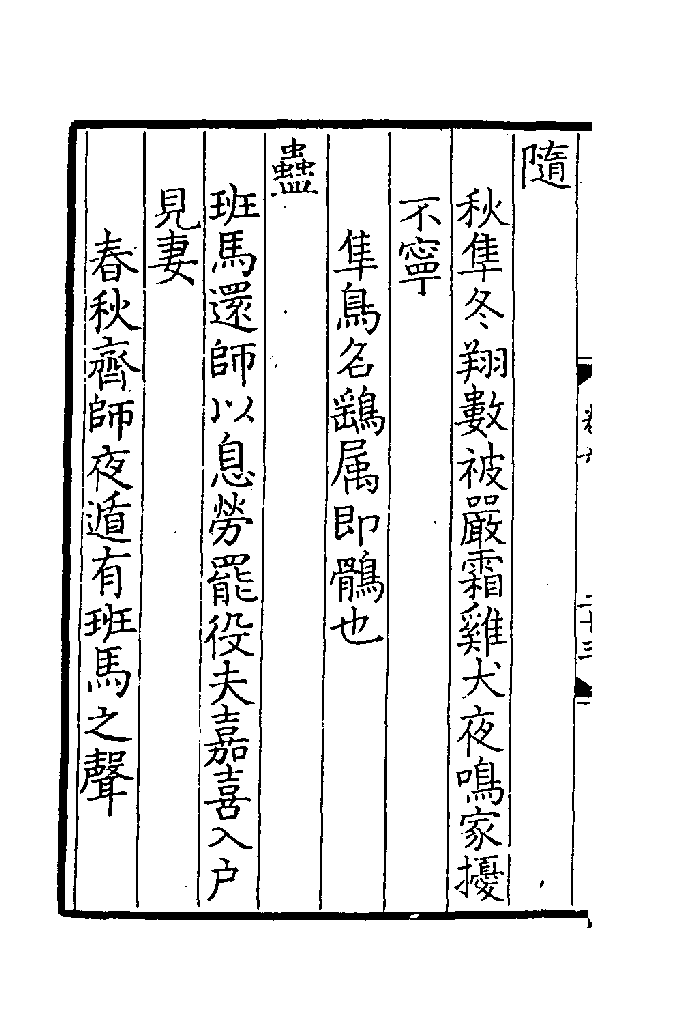 隨
秋隼冬翔數被嚴霜雞犬夜鳴家擾
不寧
隼鳥名鷂属即鶻也
蠱
班馬還師以息勞罷役夫嘉喜入户
見妻
春秋齊師夜遁有班馬之聲